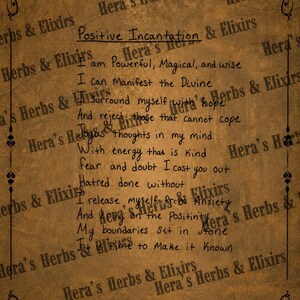 Positive Incantation
I am Powerful, Magical, and wise
I can Manifest the Divine
I surround myself with hope
And reject those that cannot cope
thoughts in my mind
With energy that is Kind
Fear and doubt I cast you out
Hatred done without
I release myself of Anxiety
And on the Positivity
My boundaries Set in Stone
to Make it Known
Hera's Herbs & Elixirs
Hera's Herbs & Elixirs
Hera's Herbs & Elixirs
Hera's Herbs & Elixirs
Hera's Herbs & Elixirs
Hera's Herbs & Elixirs
Hera's Herbs & Elixirs
Hera's Herbs & Elixirs